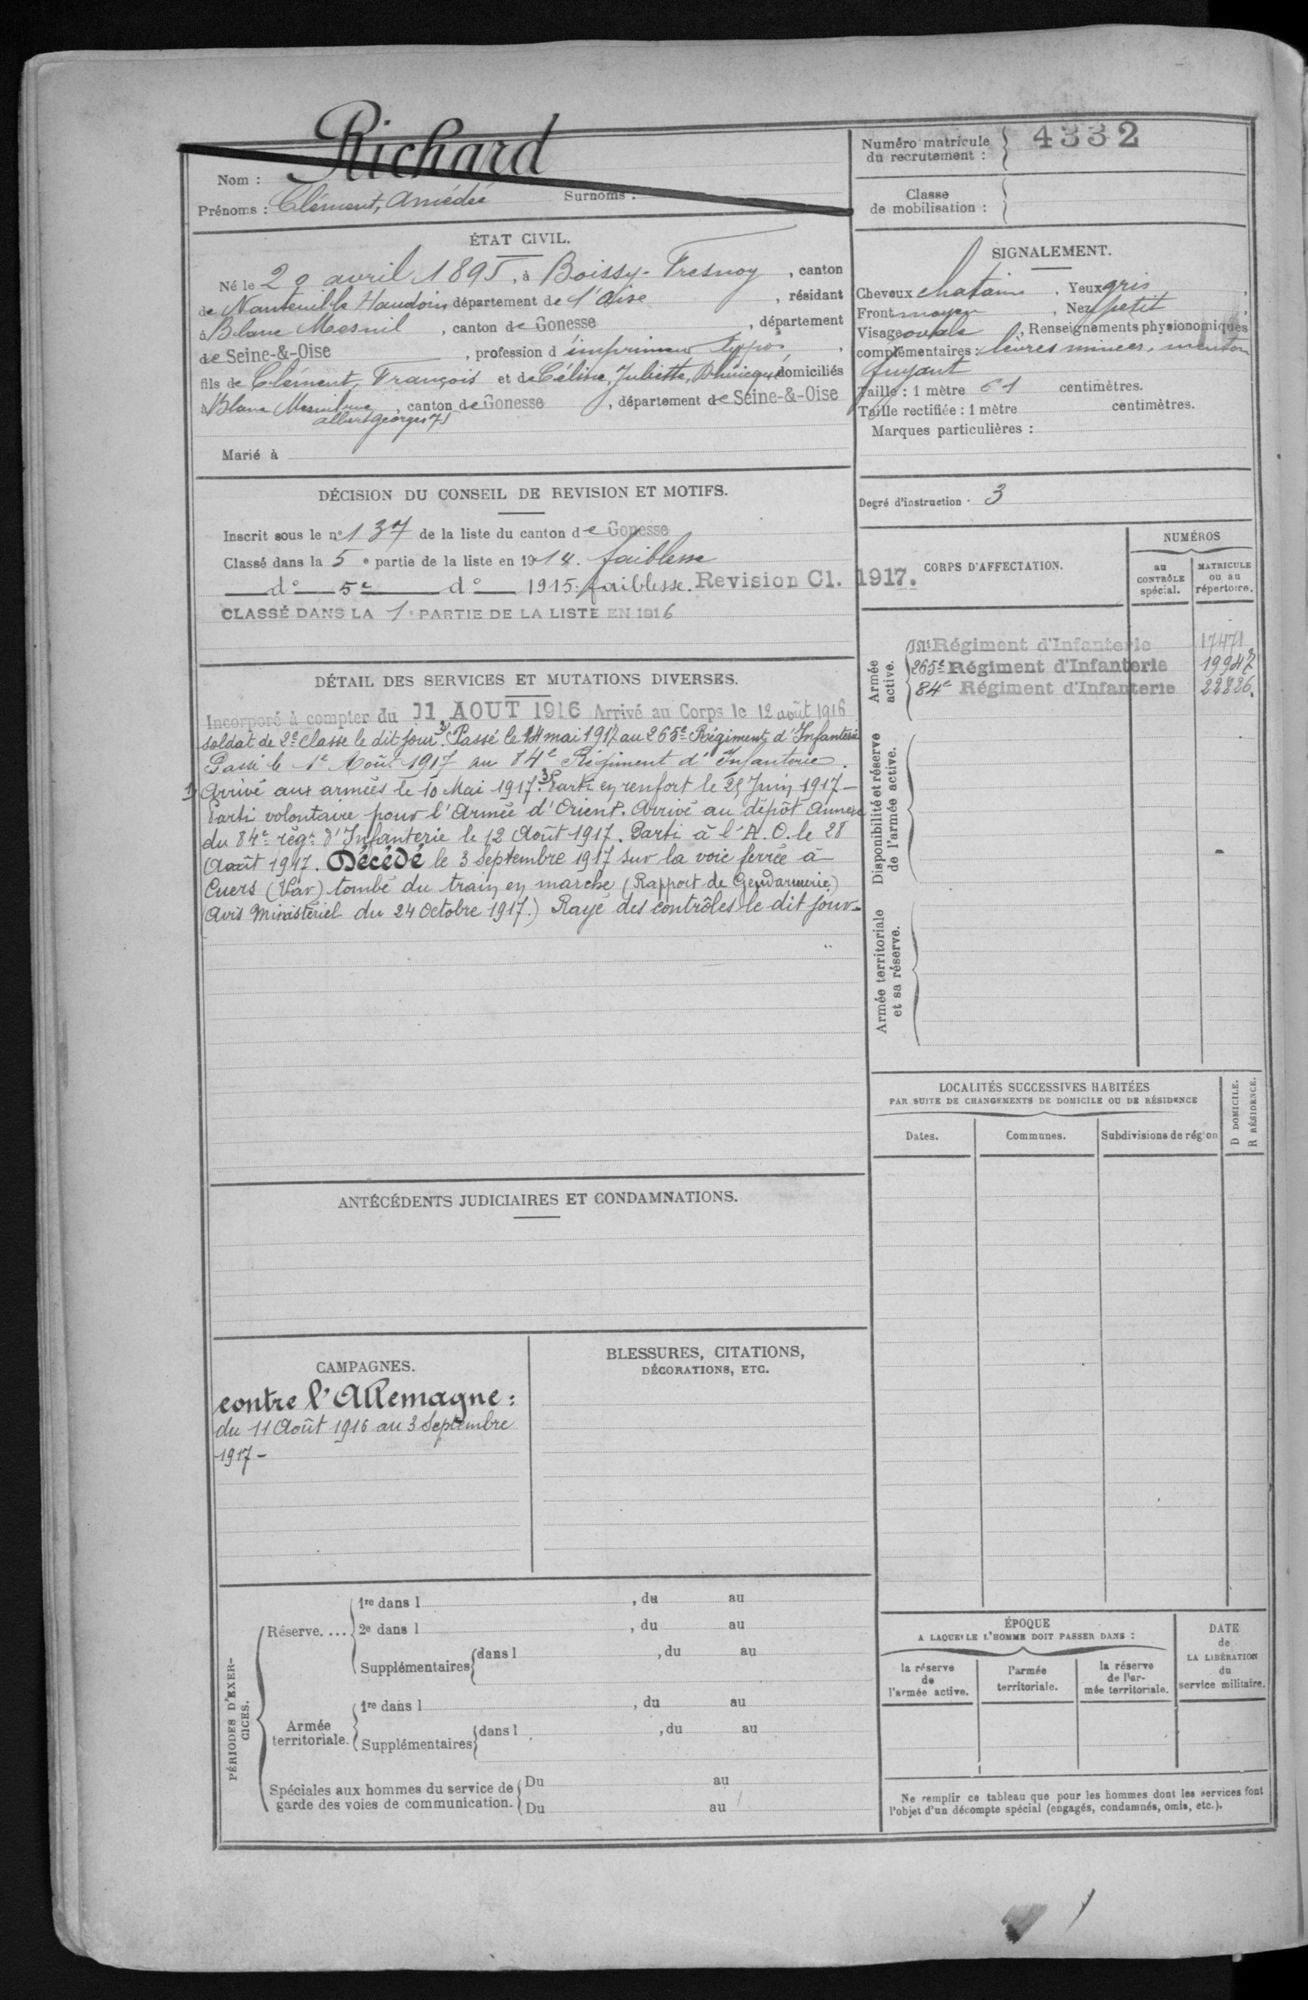 Richard
Nom :
Prénoms : Clément, Amédée Surnoms :
Numéro matricule du recrutement : 4332
Classe de mobilisation :
ÉTAT CIVIL.
Né le 29 avril 1895, à Boissy-Fresnoy, canton
de Nanteuil le Haudoin département de l'Oise, résidant
à Blanc Mesnil, canton de Gonesse, département
de Seine-&-Oise, profession d'imprimeur typpos,
fils de Clément, François et de Céline, Juliette, domiciliés
à Blanc Mesnil rue, canton de Gonesse, département de Seine-&-Oise
albert georges 71
Marié à
SIGNALEMENT.
Cheveux chatains. Yeux gris,
Front moyen, Nez petit,
Visage ovale, Renseignements physionomiques
complémentaires : lèvres minces, menton
fuyant
Taille : 1 mètre 61 centimètres.
Taille rectifiée : 1 mètre centimètres.
Marques particulières :
Degré d'instruction : 3
DÉCISION DU CONSEIL DE REVISION ET MOTIFS.
Inscrit sous le n° 137 de la liste du canton de Gonesse
Classé dans la 5e partie de la liste en 1914. faiblesse
d° 5e d° 1915: faiblesse. Revision Cl. 1917.
CLASSÉ DANS LA 1e PARTIE DE LA LISTE EN 1916
DÉTAIL DES SERVICES ET MUTATIONS DIVERSES.
Incorporé à compter du 11 AOUT 1916 Arrivé au Corps le 12 août 1916
soldat de 2e classe le dit jour. Passé le 14 mai 1917 au 265e Régiment d'Infanterie
Passé le 1e Août 1917 au 84e Régiment d'Infanterie.
1) Arrivé aux armées le 10 Mai 1917. 3) Parti en renfort le 25 Juin 1917 -
Parti volontaire pour l'Armée d'Orient. Arrivé au dépôt Annexe
du 84e rég.t d'Infanterie le 12 Août 1917. Parti à l'A. O. le 28
Août 1917. Décédé le 3 Septembre 1917 sur la voie ferrée à
Cuers (Var) tombé du train en marche (Rapport de Gendarmerie)
(Avis Ministériel du 24 Octobre 1917.) Rayé des contrôles le dit jour -
CORPS D'AFFECTATION.
NUMÉROS
au CONTRÔLE spécial.
MATRICULE ou au répertoire.
Armée active.
Régiment d'Infanterie 17471
265e Régiment d'Infanterie 19947
84e Régiment d'Infanterie 22826.
Disponibilité et réserve de l'armée active.
Armée territoriale et sa réserve.
LOCALITÉS SUCCESSIVES HABITÉES
PAR SUITE DE CHANGEMENTS DE DOMICILE OU DE RÉSIDENCE
D DOMICILE.
R RÉSIDENCE.
Dates.
Communes.
Subdivisions de région
ANTÉCÉDENTS JUDICIAIRES ET CONDAMNATIONS.
CAMPAGNES.
contre l'Allemagne :
du 11 Août 1916 au 3 Septembre
1917 -
BLESSURES, CITATIONS,
DÉCORATIONS, ETC.
PÉRIODES D'EXERCICES.
Réserve....
1re dans l , du au
2e dans l , du au
Supplémentaires dans l , du au
Armée territoriale.
1re dans l , du au
Supplémentaires dans l , du au
Spéciales aux hommes du service de
garde des voies de communication.
Du au
Du au
ÉPOQUE
A LAQUELLE L'HOMME DOIT PASSER DANS :
la réserve de l'armée active.
l'armée territoriale.
la réserve de l'armée territoriale.
DATE de LA LIBÉRATION du service militaire.
Ne remplir ce tableau que pour les hommes dont les services font
l'objet d'un décompte spécial (engagés, condamnés, omis, etc.).